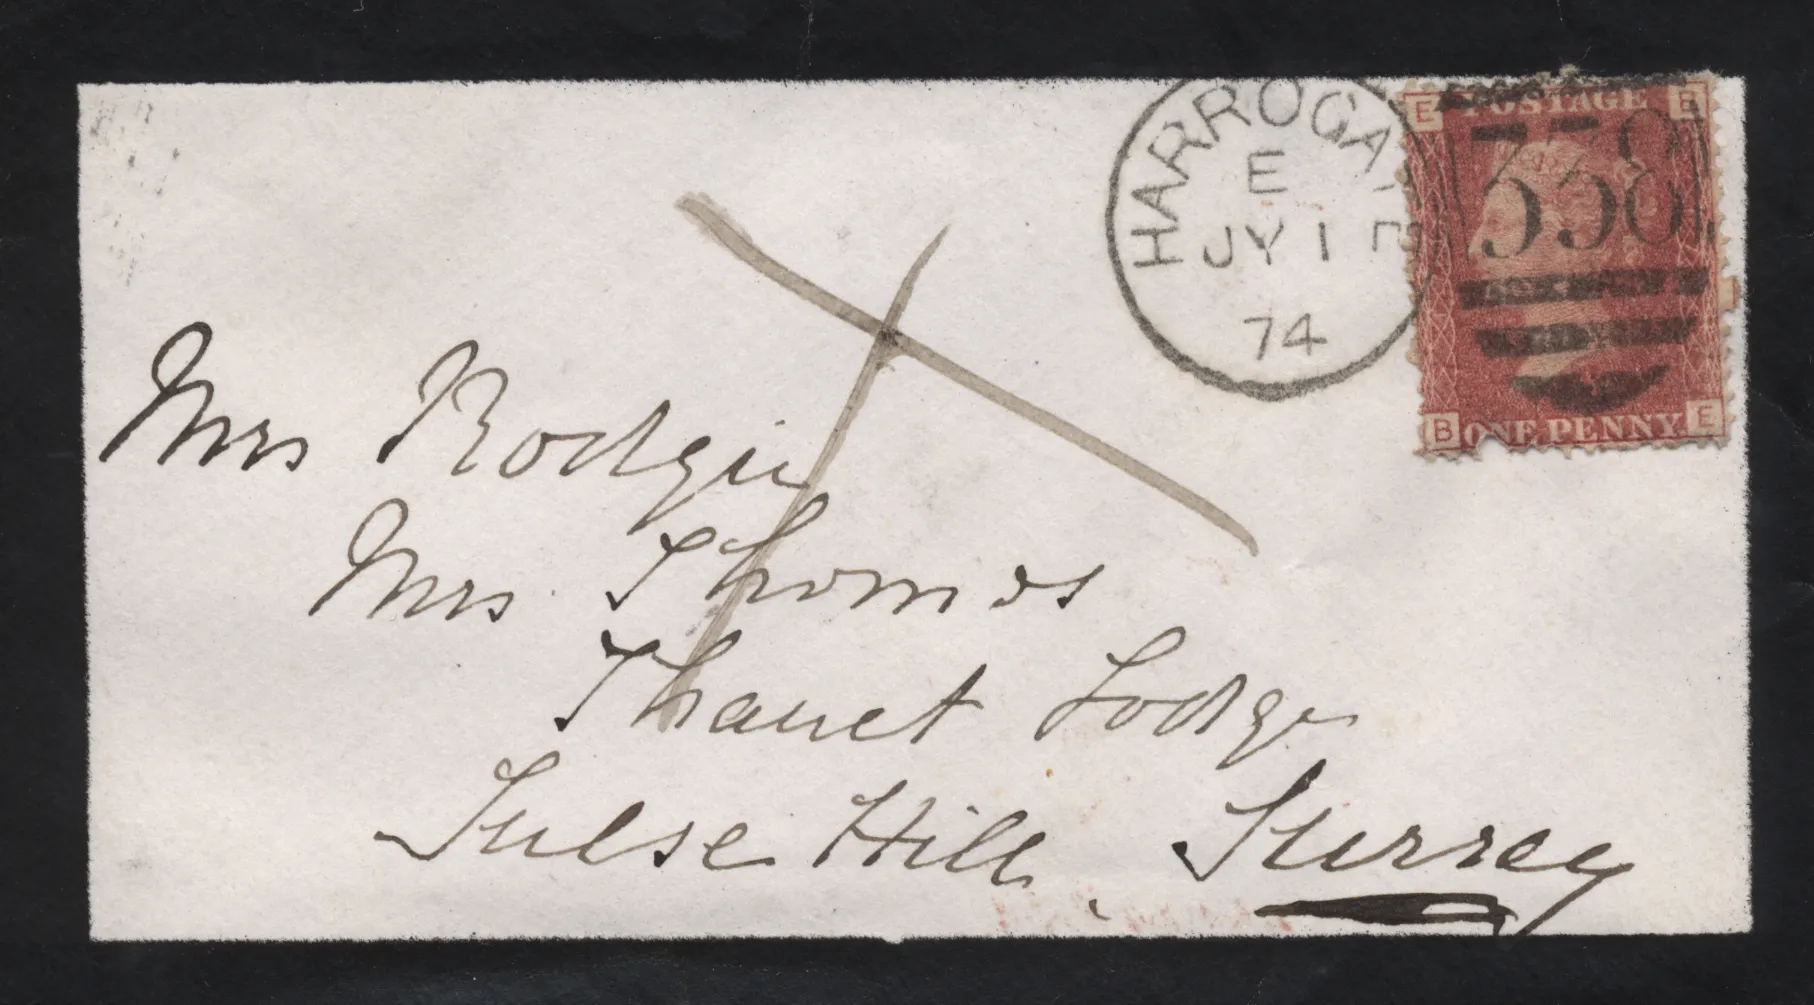 HARROGA
E
JY 1
74
E POSTAGE B
358
B ONE PENNY E
Mrs
Mrs Thomas
Thanet Lodge
Tulse Hill Surrey